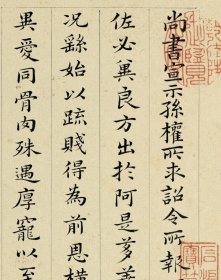 尚書宣示孫權所求詔令所報
佐必異良方出於阿是芻蕘
況繇始以疏賤得為前恩橫
異愛同骨肉殊遇厚寵以至